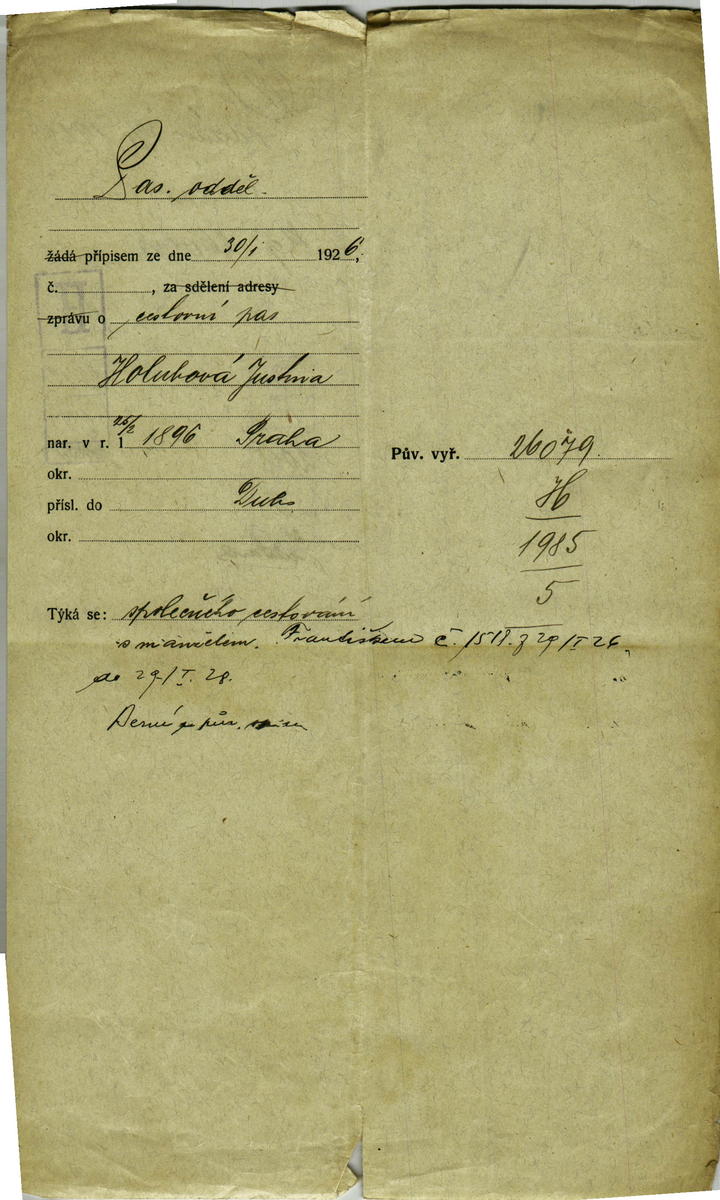 Pas. odděl.
žádá přípisem ze dne 30/I 1926,
č. , za sdělení adresy
zprávu o cestovní pas
Holubová Justina
nar. v r. 1 25/2 1896 Praha
okr.
přísl. do Dubs
okr.
Pův. vyř. 26079.
H
1985
5
Týká se: společného cestování
s manželem. Františkem č. 1518. z 29/I 26,
do 29/I. 28.